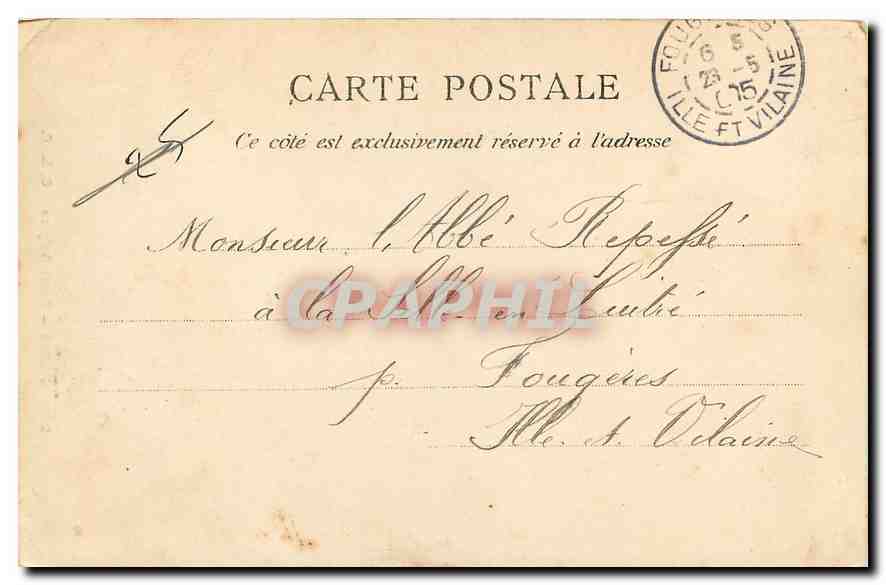 FOUG
6 5
23 -5
05
ILLE ET VILAINE
CARTE POSTALE
Ce côté est exclusivement réservé à l'adresse
Monsieur l'Abbé Repessé
à la Selle en Luitré
p. Fougères
Ille et Vilaine
CPAPHIL